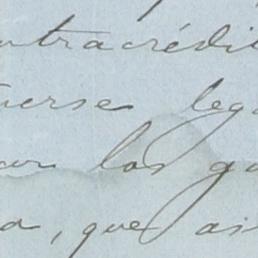 ntracrédit
verse lega
ar los ga
a, que as